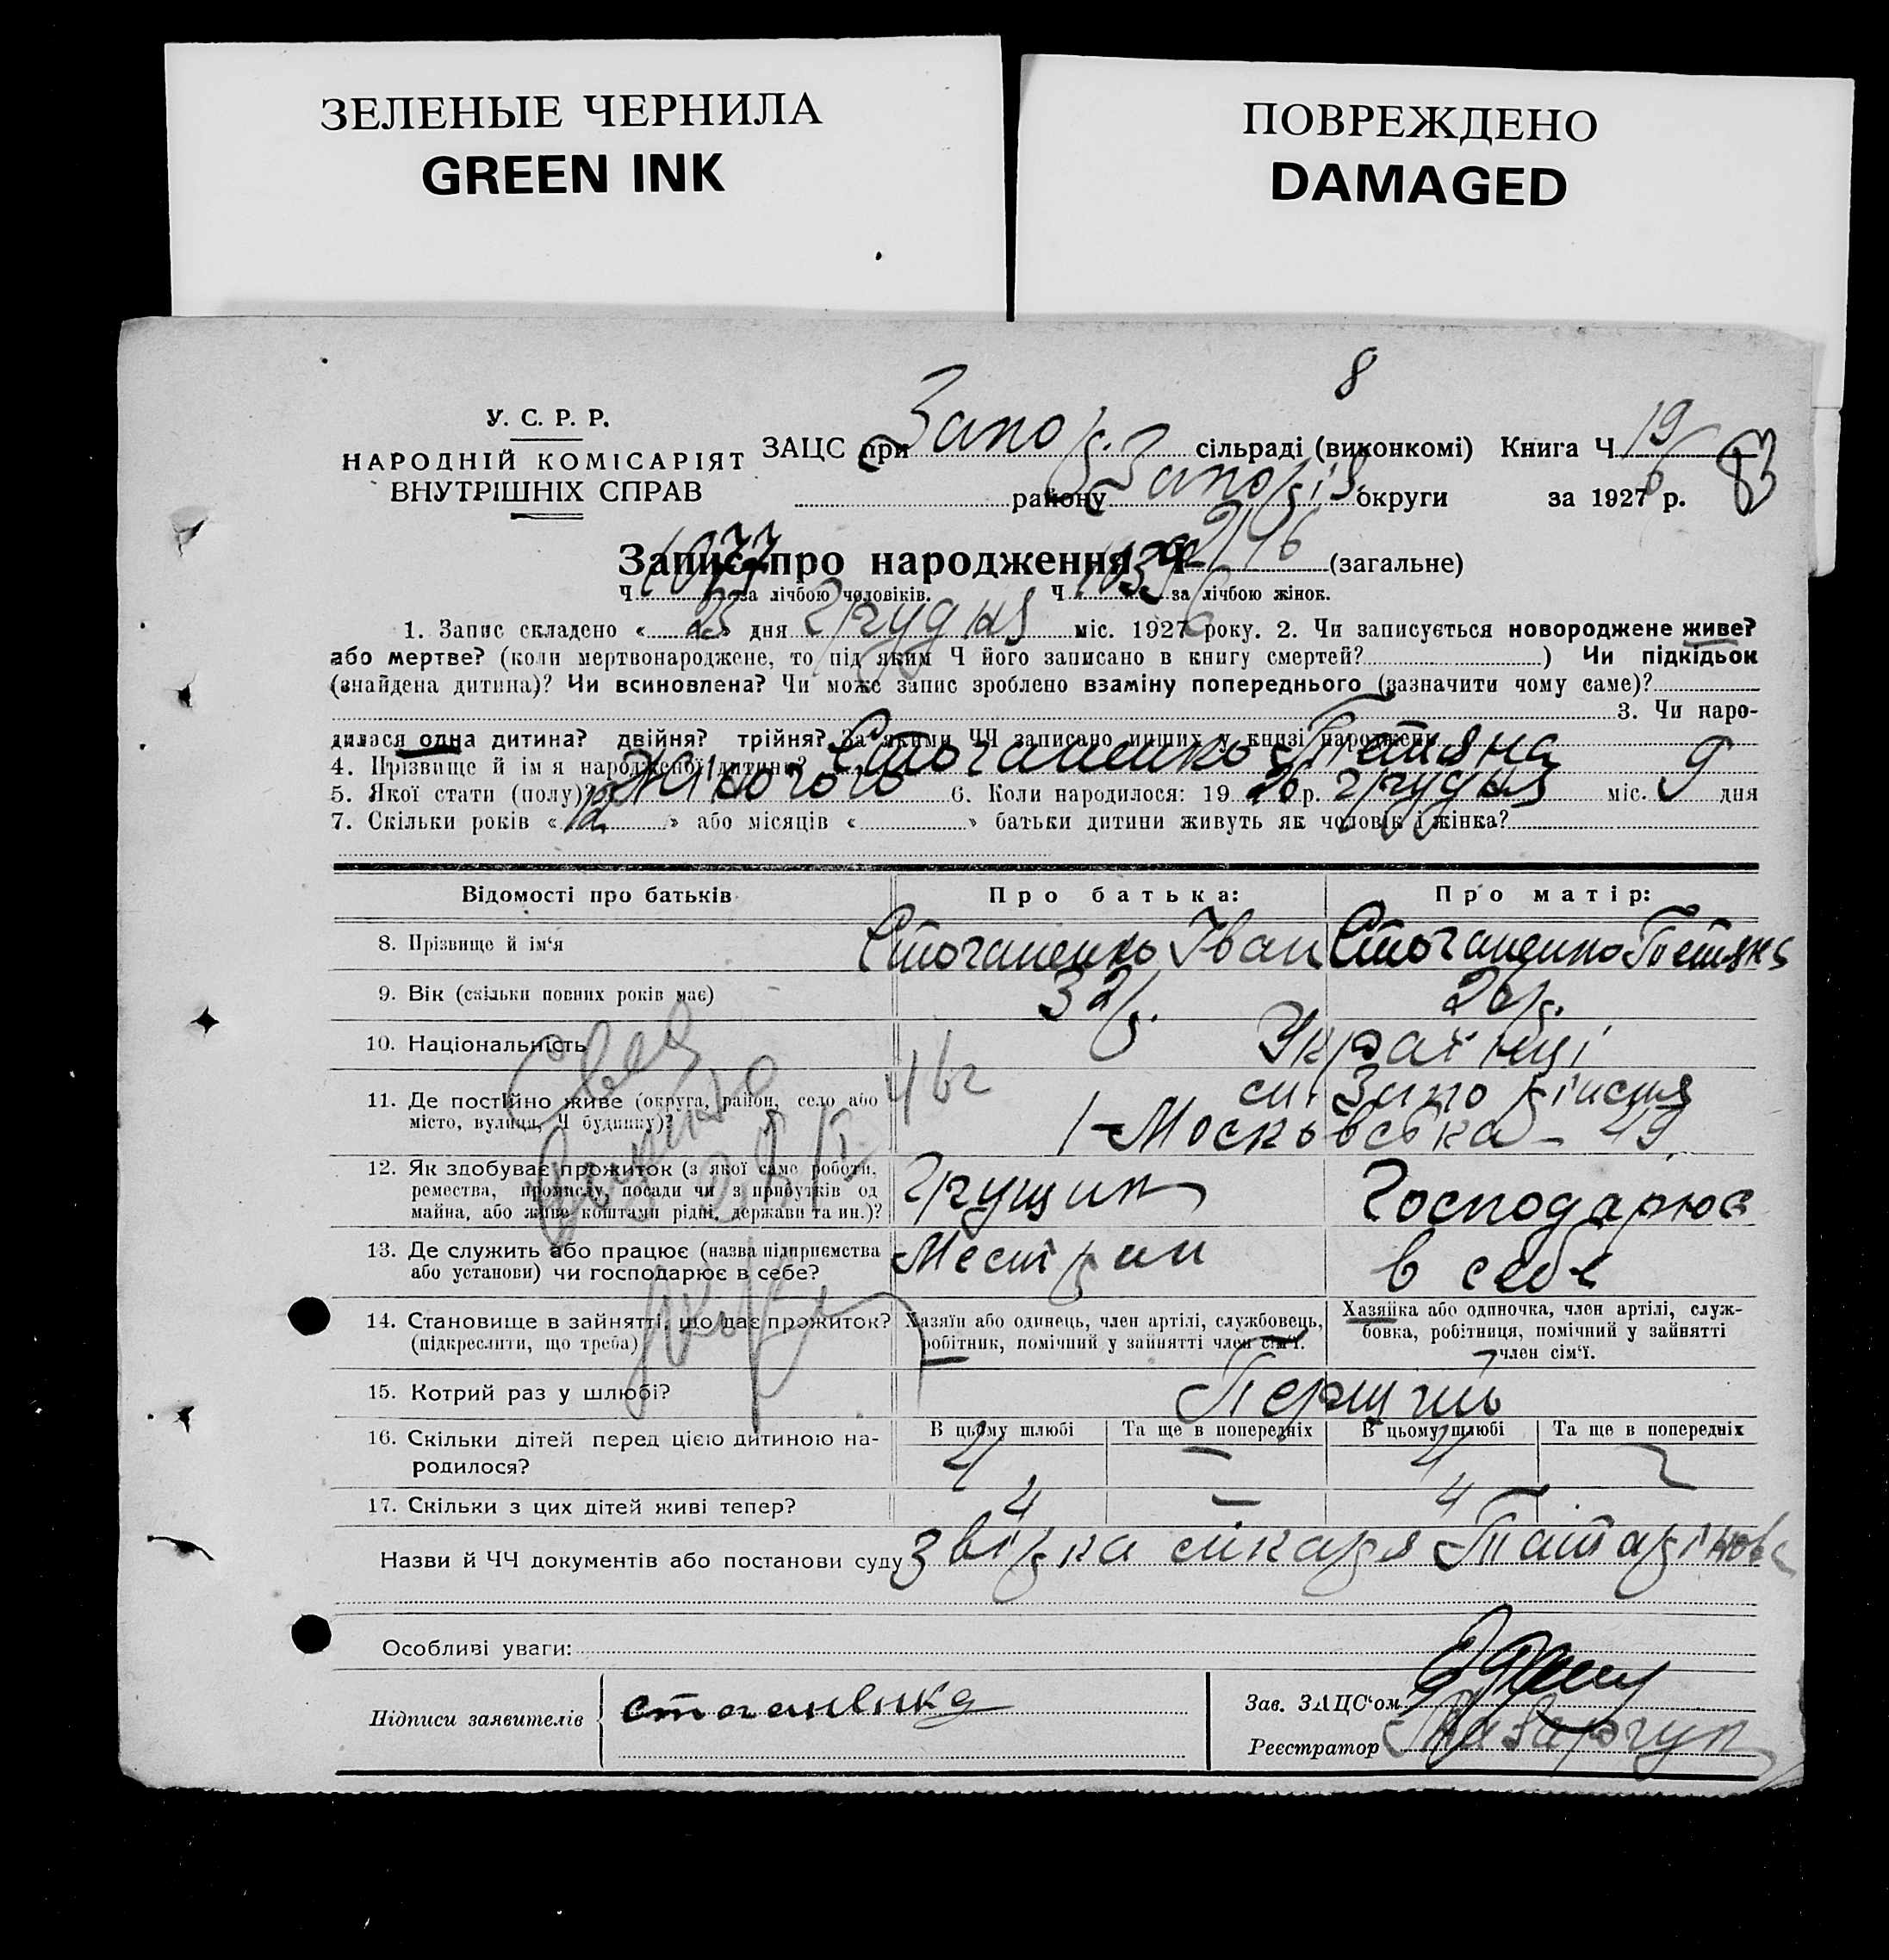 ЗЕЛЕНЫЕ ЧЕРНИЛА
GREEN INK
ПОВРЕЖДЕНО
DAMAGED
8
У. С. Р. Р.
НАРОДНІЙ КОМІСАРІЯТ
ВНУТРІШНІХ СПРАВ
ЗАЦС при Запор. сільраді (виконкомі) Книга Ч 19
району Запоріз. округи за 1927 6 р. 83
Запис про народження Ч 2116 (загальне)
Ч 1077 за лічбою чоловіків. Ч 1039 за лічбою жінок.
1. Запис складено « » дня Грудня міс. 1927 6 року. 2. Чи записується новороджене живе?
або мертве? (коли мертвонароджене, то під яким Ч його записано в книгу смертей? ) Чи підкідьок
(знайдена дитина)? Чи всиновлена? Чи може запис зроблено взаміну попереднього (зазначити чому саме)?
3. Чи наро-
дилася одна дитина? двійня? трійня? За якими ЧЧ записано инших у книзі народжень
4. Прізвище й ім я народженої дитини? Стоганенко Тетяна
5. Якої стати (полу)? Жіночого 6. Коли народилося: 19 26 р. Грудня міс. 9 дня
7. Скільки років « 12 » або місяців « » батьки дитини живуть як чоловік і жінка?
Відомості про батьків Про батька: Про матір:
8. Прізвище й ім‘я Стоганенко Іван Стоганенко Тетяна
9. Вік (скільки повних років має) 32 р. 26 р.
10. Національність Українці
11. Де постійно живе (округа, район, село або
місто, вулиця, Ч будинку)? ст. Запоріжжя
1-Московська - 49
12. Як здобуває прожиток (з якої саме роботи,
ремества, промислу, посади чи з прибутків од
майна, або живе коштами рідні, держави та ин.)? Грущик Господарює
13. Де служить або працює (назва підприємства
або установи) чи господарює в себе? Местран в себе
14. Становище в зайнятті, що дає прожиток?
(підкреслити, що треба)
Хазяїн або одинець, член артілі, службовець,
робітник, помічний у зайнятті член сім‘ї.
Хазяйка або одиночка, член артілі, служ-
бовка, робітниця, помічний у зайнятті
член сім‘ї.
15. Котрий раз у шлюбі? Перший
16. Скільки дітей перед цією дитиною на-
родилося?
В цьому шлюбі Та ще в попередніх В цьому шлюбі Та ще в попередніх
4 — 4 —
17. Скільки з цих дітей живі тепер? 4 — 4
Назви й ЧЧ документів або постанови суду Звірка лікаря Татарінова
Особливі уваги:
Підписи заявителів стоганенко
Зав. ЗАЦС‘ом
Реєстратор